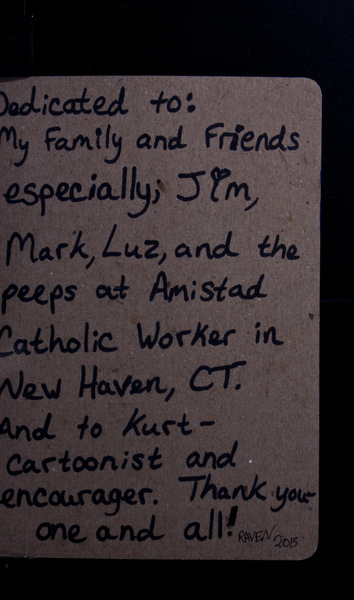 Dedicated to:
My Family and Friends
especially; Jim,
Mark, Luz, and the
peeps at Amistad
Catholic Worker in
New Haven, CT.
And to Kurt-
cartoonist and
encourager. Thank you-
one and all! RAVEN 2015